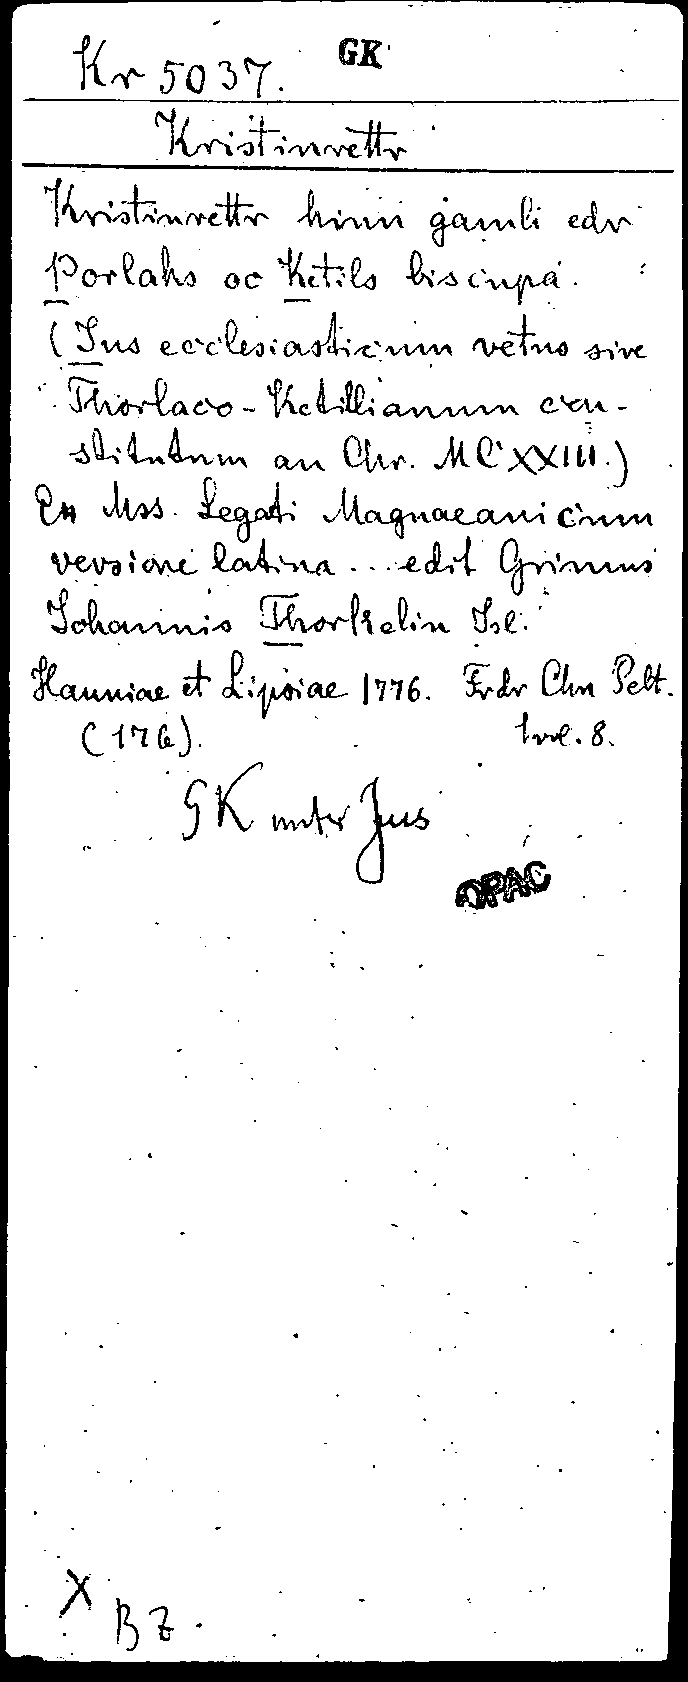 GK
Kr 5037.
Kristinrettr
Kristinrettr hinn gamli edr
Þorlaks oc Ketils biscupa.
(Jus ecclesiasticum vetus sive
Thorlaco-Ketillianum con-
stitutum an Chr. MCXXIII.)
Ex Mss. Legati Magnaeani cum
versione latina ... edit Grimus
Johannis Thorkelin Isl.
Hauniae et Lipsiae 1776. Frdr Chn Pelt.
(176). 1 vol. 8.
GK unter Jus
OPAC
X
BZ.